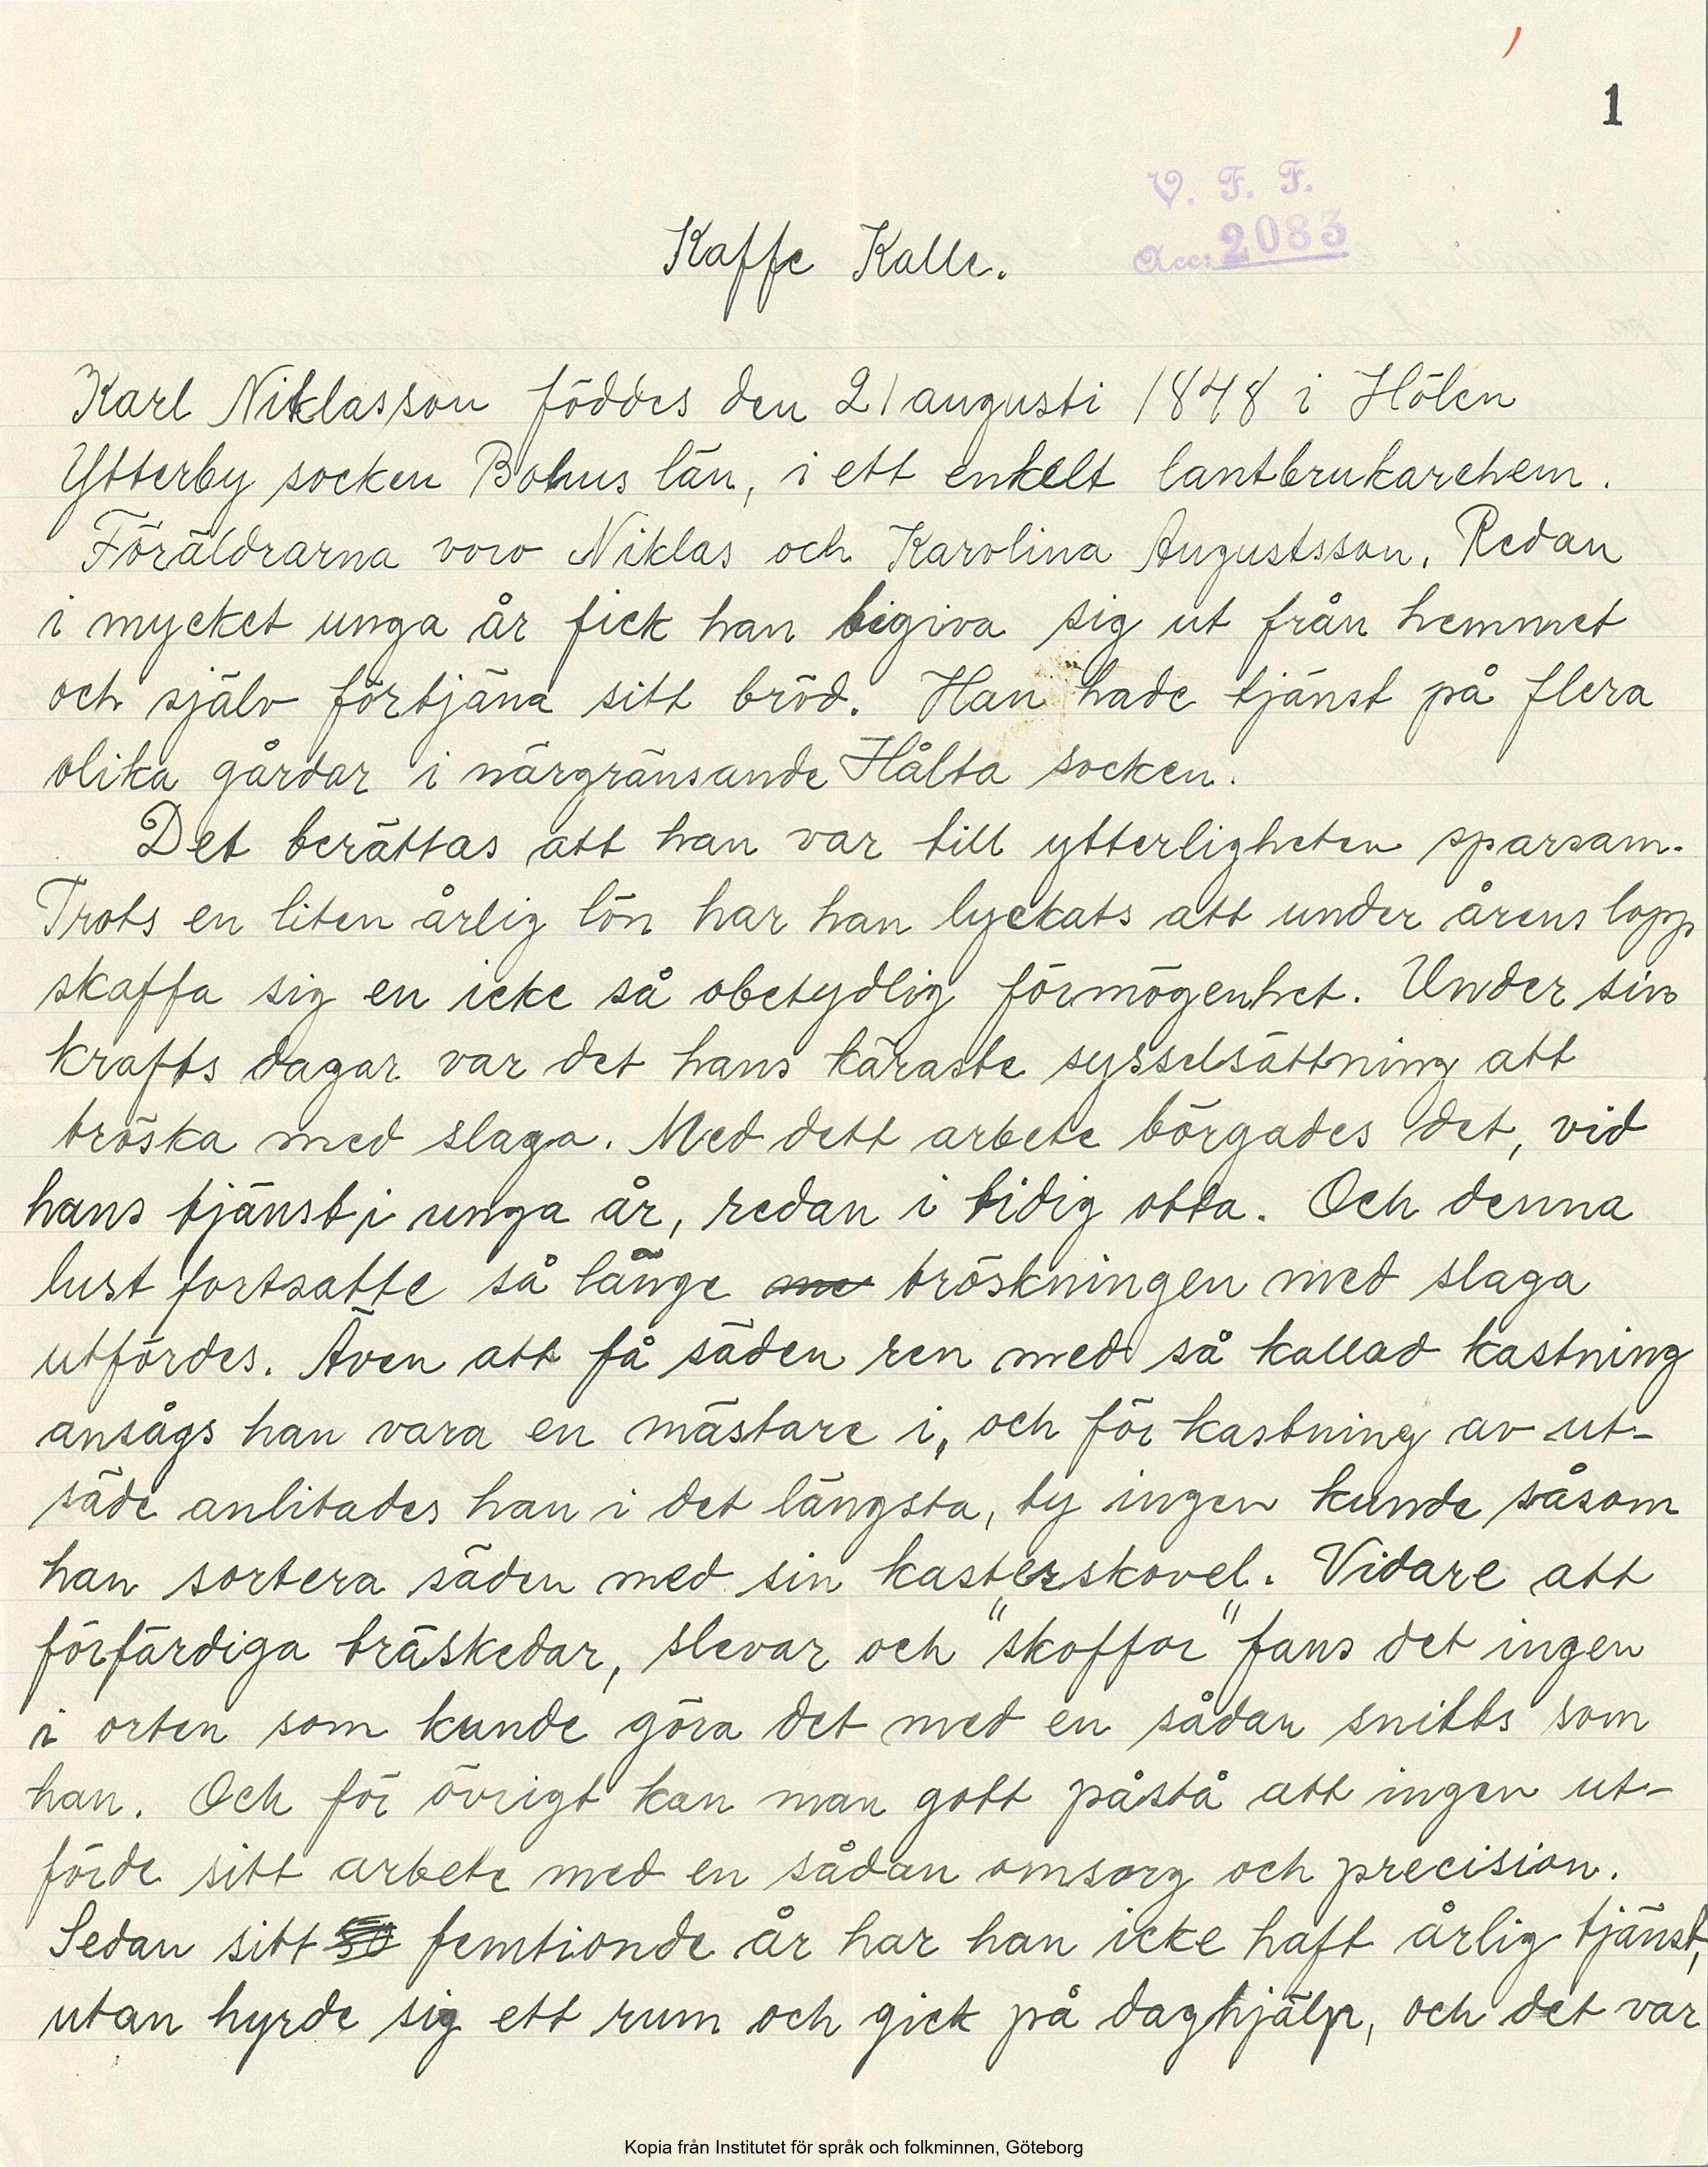 1
V. F. F.
Acc: 2083
Kaffe Kalle.
Karl Niklasson föddes den 21 augusti 1848 i Hölen
Ytterby socken Bohus län, i ett enkelt lantbrukarehem.
Föräldrarna voro Niklas och Karolina Augustsson. Redan
i mycket unga år fick han begiva sig ut från hemmet
och själv förtjäna sitt bröd. Han hade tjänst på flera
olika gårdar i närgränsande Hålta socken.
Det berättas att han var till ytterligheten sparsam.
Trots en liten årlig lön har han lyckats att under årens lopp
skaffa sig en icke så obetydlig förmögenhet. Under sin
krafts dagar var det hans käraste sysselsättning att
tröska med slaga. Med dett arbete börgades det, vid
hans tjänst i unga år, redan i tidig otta. Och denna
lust fortsatte så länge me tröskningen med slaga
utfördes. Även att få säden ren med så kallad kastning
ansågs han vara en mästare i, och för kastning av ut-
säde anlitades han i det längsta, ty ingen kunde såsom
han sortera säden med sin kasterskovel. Vidare att
förfärdiga träskedar, slevar och "skoffor" fans det ingen
i orten som kunde göra det med en sådan snitts som
han. Och för övrigt kan man gott påstå att ingen ut-
förde sitt arbete med en sådan omsorg och precision.
Sedan sitt 50 femtionde år har han icke haft årlig tjänst,
utan hyrde sig ett rum och gick på daghjälp, och det var
Kopia från Institutet för språk och folkminnen, Göteborg